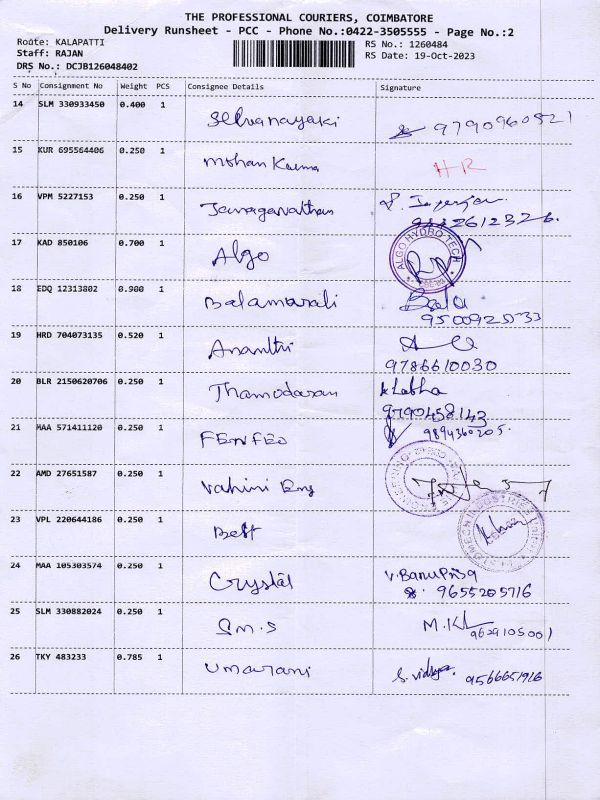 THE PROFESSIONAL COURIERS, COIMBATORE
Delivery Runsheet - PCC - Phone No.:0422-3505555 - Page No.:2
Route: KALAPATTI
RS No.: 1260484
Staff: RAJAN
RS Date: 19-Oct-2023
DRS No.: DCJB126048402
S No Consignment No Weight PCS Consignee Details Signature
14 SLM 330933450 0.400 1
Selvanayaki 9790960521
15 KUR 695564406 0.250 1
Mohan Kuma HR
16 VPM 5227153 0.250 1
Janaganathan
17 KAD 850106 0.700 1
Algo ALGO HYDRO TECH
18 EDQ 12313802 0.900 1
Balamurali Bala
19 HRD 704073135 0.520 1
Ananthi
9786610030
20 BLR 2150620706 0.250 1
Thamodaran Latha
9790458143
21 MAA 571411120 0.250 1
FENFEO 9894360205.
22 AMD 27651587 0.250 1
Vahini Eng
23 VPL 220644186 0.250 1
Beff
24 MAA 105303574 0.250 1
Crystal V.BanuPriya
9655205716
25 SLM 330882024 0.250 1
S.M.S 9629105001
26 TKY 483233 0.785 1
Umarani S. Vidhya. 9566651926